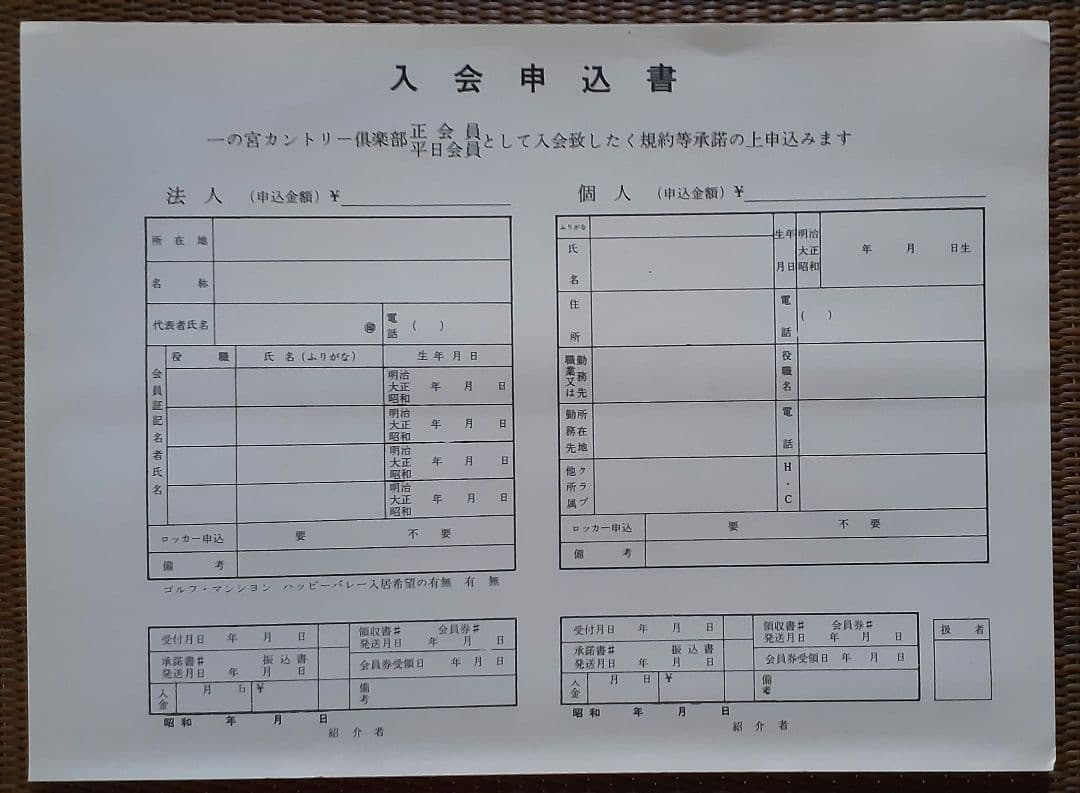 入会申込書
一の宮カントリー倶楽部正会員平日会員として入会致したく規約等承諾の上申込みます
法人 (申込金額) ¥
所在地
名称
代表者氏名 ㊞ 電話 ( )
会員証記名者氏名
役職 氏名(ふりがな) 生年月日
明治 大正 昭和 年 月 日
明治 大正 昭和 年 月 日
明治 大正 昭和 年 月 日
明治 大正 昭和 年 月 日
ロッカー申込 要 不要
備考
ゴルフ・マンション ハッピーバレー入居希望の有無 有 無
個人 (申込金額) ¥
ふりがな
氏名 生年月日 明治 大正 昭和 年 月 日生
住所 電話 ( )
勤務先又は職業 役職名
勤務先所在地 電話
他所属クラブ H・C
ロッカー申込 要 不要
備考
受付月日 年 月 日
領収書# 会員券#
発送月日 年 月 日
承諾書# 振込書
発送月日 年 月 日
会員券受領日 年 月 日
入金 月 日 ¥
備考
昭和 年 月 日
紹介者
受付月日 年 月 日
領収書# 会員券#
発送月日 年 月 日
承諾書# 振込書
発送月日 年 月 日
会員券受領日 年 月 日
入金 月 日 ¥
備考
昭和 年 月 日
紹介者
扱者